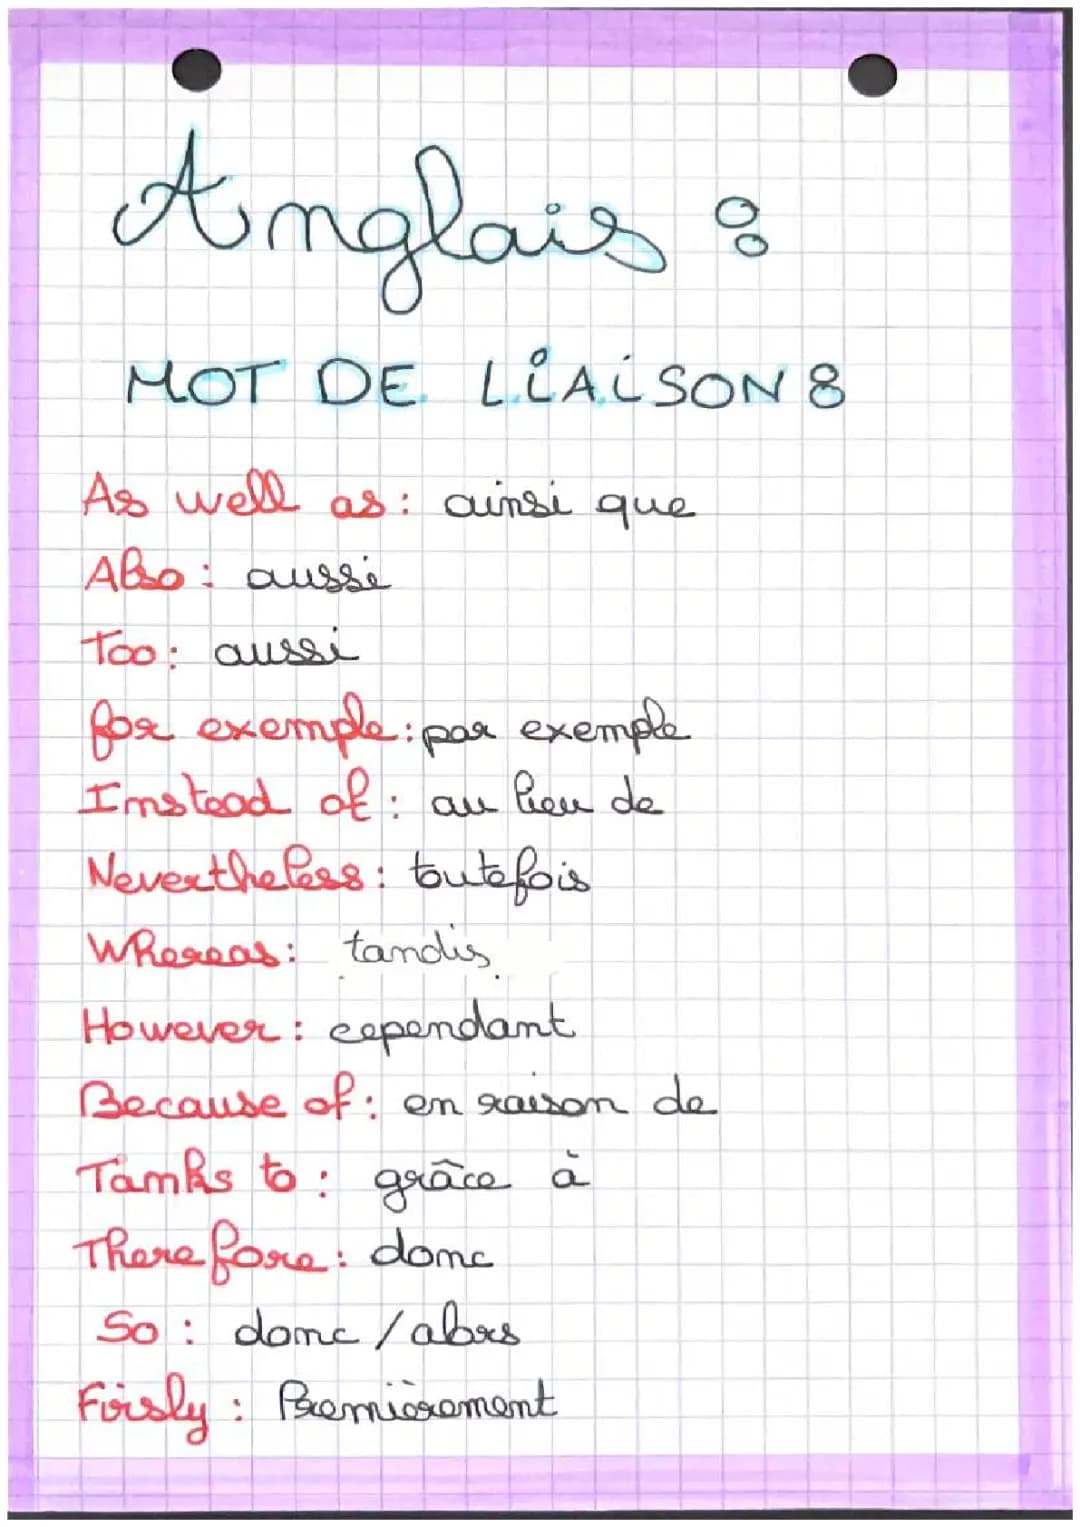 Anglais :
MOT DE LIAISON :
As well as : ainsi que
Also : aussi
Too : aussi
for exemple : par exemple
Instead of : au lieu de
Nevertheless : toutefois
Whereas : tandis
However : cependant
Because of : en raison de
Tanks to : grâce à
Therefore : donc
So : donc / alors
Firsly : Premièrement